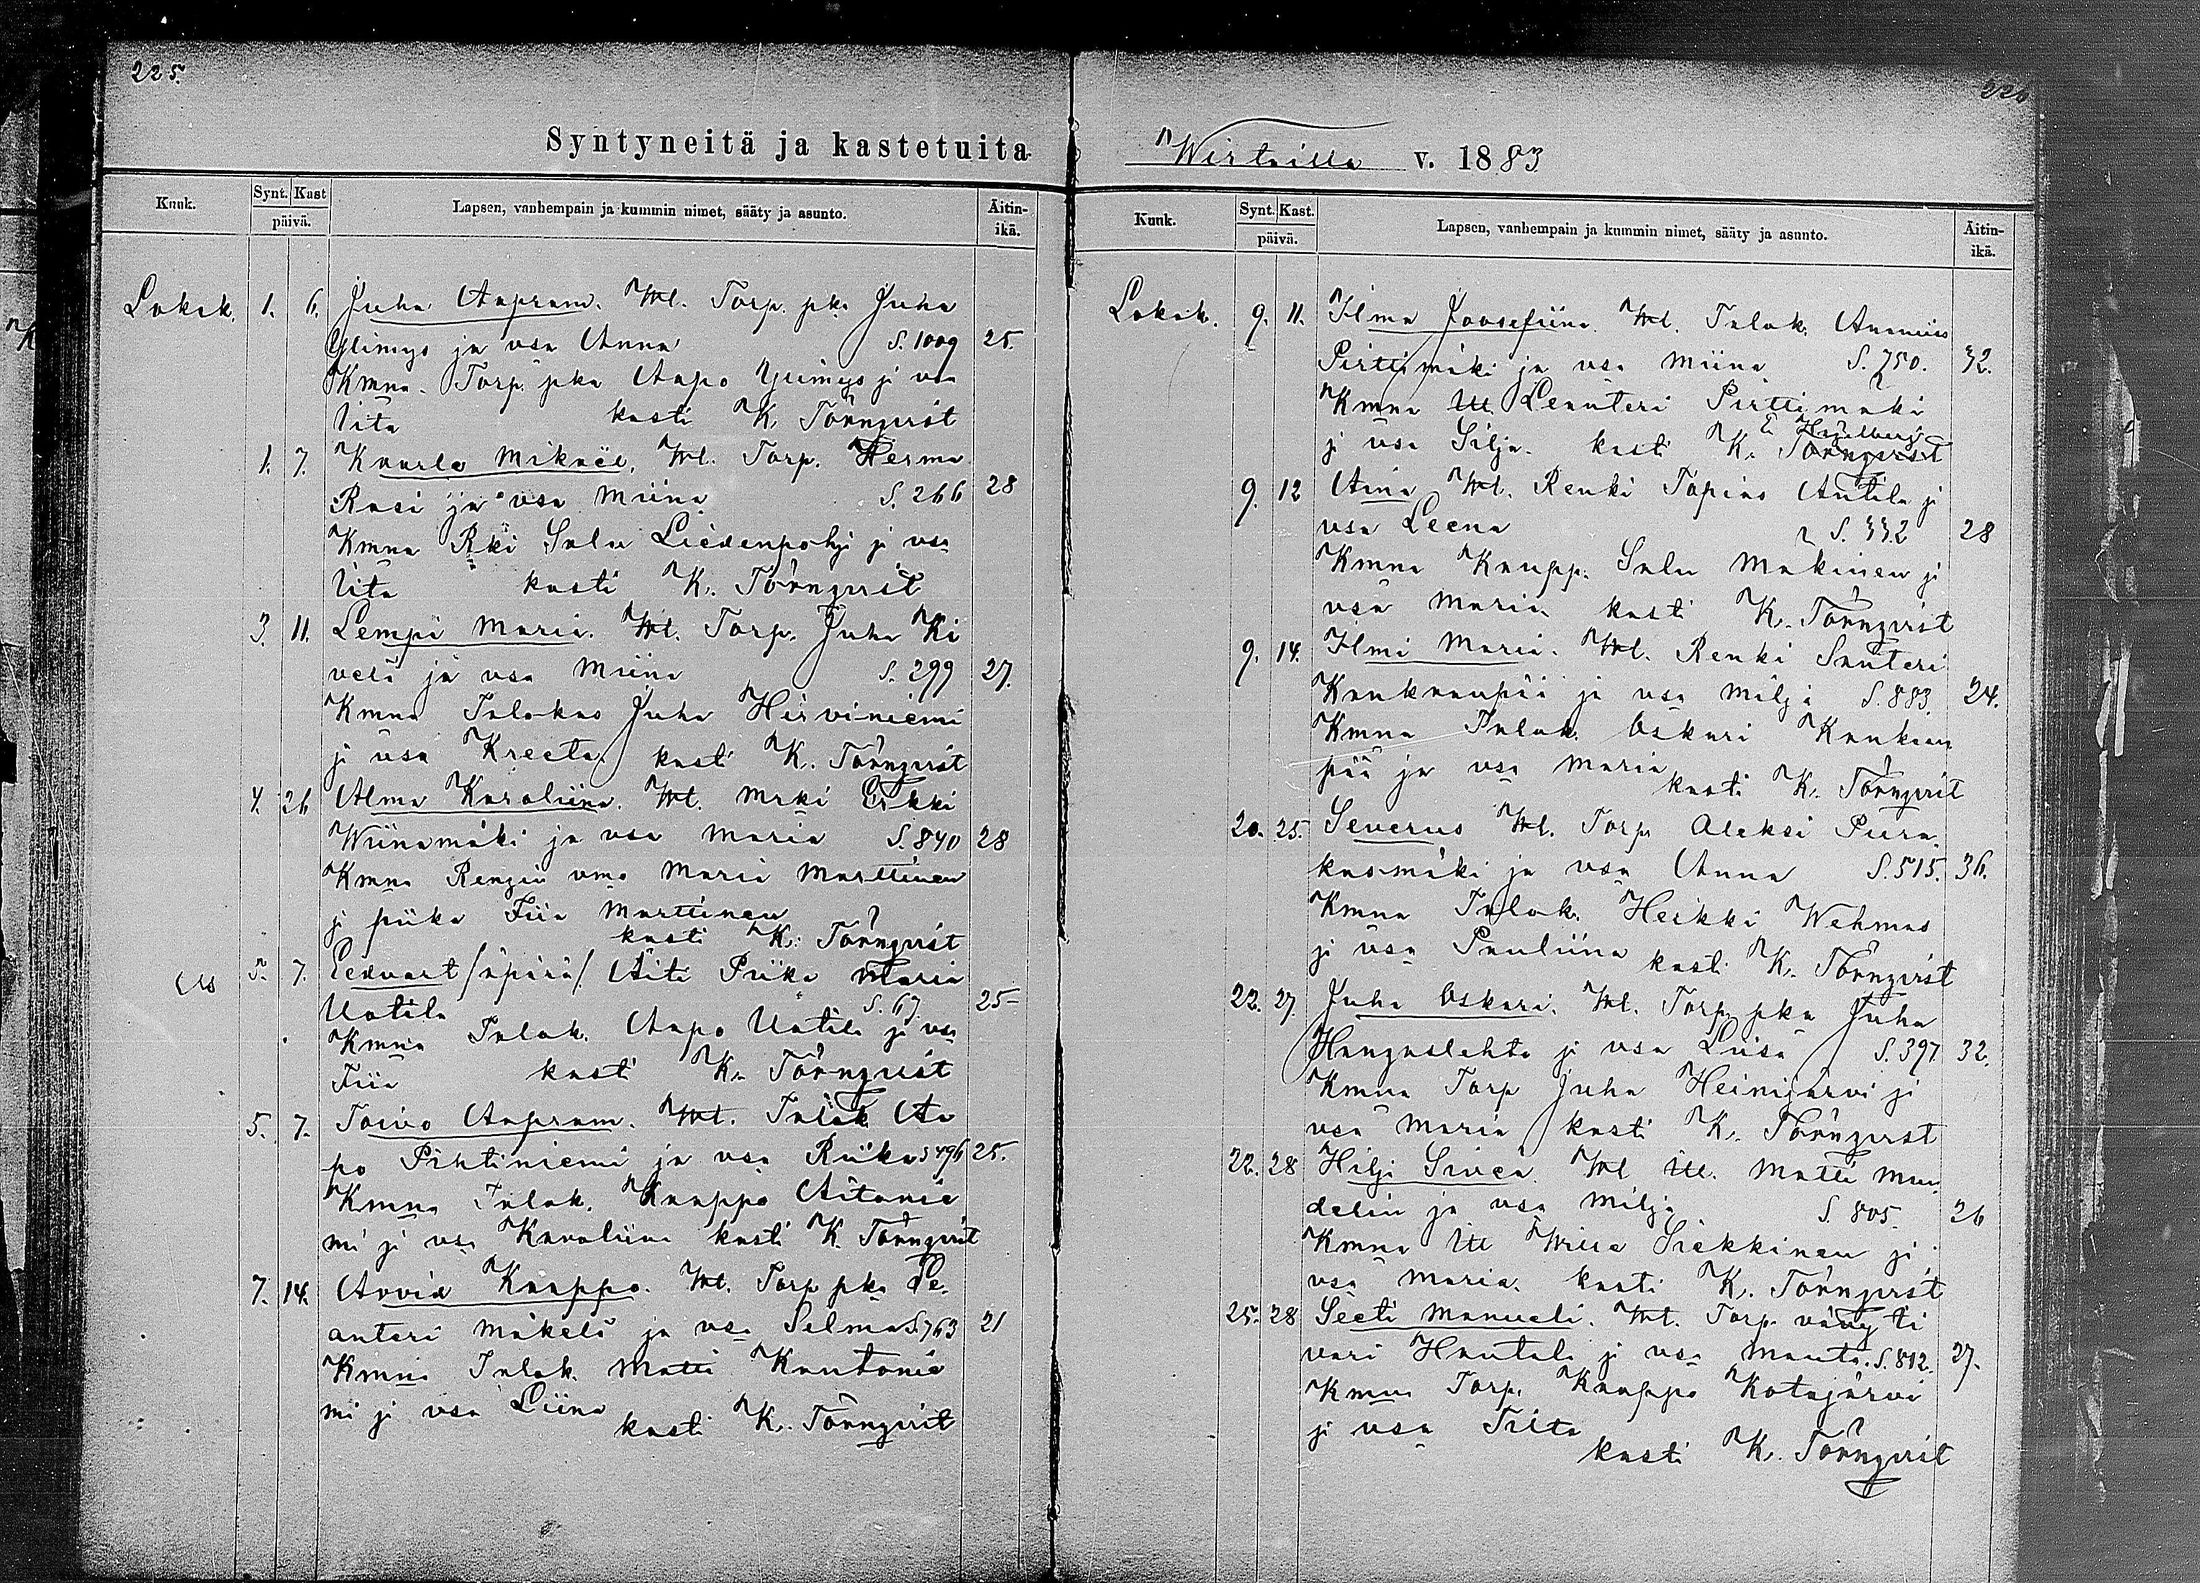 225.
Syntyneitä ja kastetuita
Kuuk. Synt. Kast päivä. Lapsen, vanhempain ja kummin nimet, sääty ja asunto. Äitin-ikä.
Lokak. 1. 6. Juha Aapram. Wl. Torp. pka Juha
Ylimys ja vsa Anna S. 1009 25.
Kmna. Torp. pka Aapo Ylimys ji vsa
Iita kasti K. Törnqvist
1. 7. Kaarlo Mikael, Wl. Torp. Herma
Rasi ja vsa Miina S. 266 28
Kmna Rki Salu Liedenpohj ji vsa
Iita kasti K. Törnqvist
3. 11. Lempi Maria. Wl. Torp. Juha Ki
velä ja vsa Miina S. 299 27.
Kmna Talokas Juha Hirviniemi
ji vsa Kreeta kasti K. Törnqvist
4. 26 Alma Karoliina. Wl. Mäki Erkki
Wiinamäki ja vsa Maria S. 840 28
Kmna Rengin vmo Maria Marttinen
ji piika Fiia Marttinen
kasti K. Törnqvist
5. 7. Eedvart /äpärä/ Äiti Piika Maria
Uotila S. 67. 25
Kmna Talok. Aapo Uotila ji vsa
Fiia kasti K. Törnqvist
5. 7. Toivo Aapram. Wl. Talok Aa
po Pihtiniemi ja vsa Riika S 496 25.
Kmna Talok. Kaappo Aitonie
mi ji vsa Karoliina kasti K. Törnqvist
7. 14. Arvid Kaappo. Wl. Torp pka Le
anteri Mäkelä ja vsa Selma S 763 21
Kmna Talok. Matti Kautonie
mi ji vsa Liina
kasti K. Törnqvist
226
Wirtailla v. 1883
Kuuk. Synt. Kast. päivä. Lapsen, vanhempain ja kummin nimet, sääty ja asunto. Äitin-ikä.
Lokak. 9. 11. Ilma Joosefiina. Wl. Talok. Ananias
Pirttimäki ja vsa Miina S. 750. 32.
Kmna Itl Leanteri Pirttimäki
E Hagelberg
ji vsa Silja. kasti K. Törnqvist
9. 12 Aina Wl. Renki Topias Antila ji
vsa Leena S. 332 28
Kmna Kaupp. Salu Mäkinen ji
vsa Maria kasti K. Törnqvist
9. 14. Ilmi Maria. Wl. Renki Santeri
Kankaanpää ja vsa Milja S. 883. 24.
Kmna Talok. Oskari Kankaan
pää ja vsa Maria
kasti K. Törnqvist
20. 25. Severus Wl. Torp Aleksi Pura
kasmäki ja vsa Anna S. 515. 36.
Kmna Talok. Heikki Wehmas
ji vsa Pauliina kasti K. Törnqvist
22. 27. Juha Oskari. Wl. Torp pka Juha
Hangaslahto ji vsa Luisa S. 397 32.
Kmna Torp Juha Heinijärvi ji
vsa Maria kasti K. Törnqvist
22. 28 Hilja Sivea Wl Itl. Matti Mun
delin ja vsa Milja S. 805. 26
Kmna Itl Wille Siekkinen ji
vsa Maria. kasti K. Törnqvist
25. 28 Seeti Manueli. Wl. Torp. vävy Ti
vari Hautala ji vsa Manta. S. 812. 27.
Kmna Torp. Kaappo Kotajärvi
ji vsa Tilta
kasti K. Törnqvist